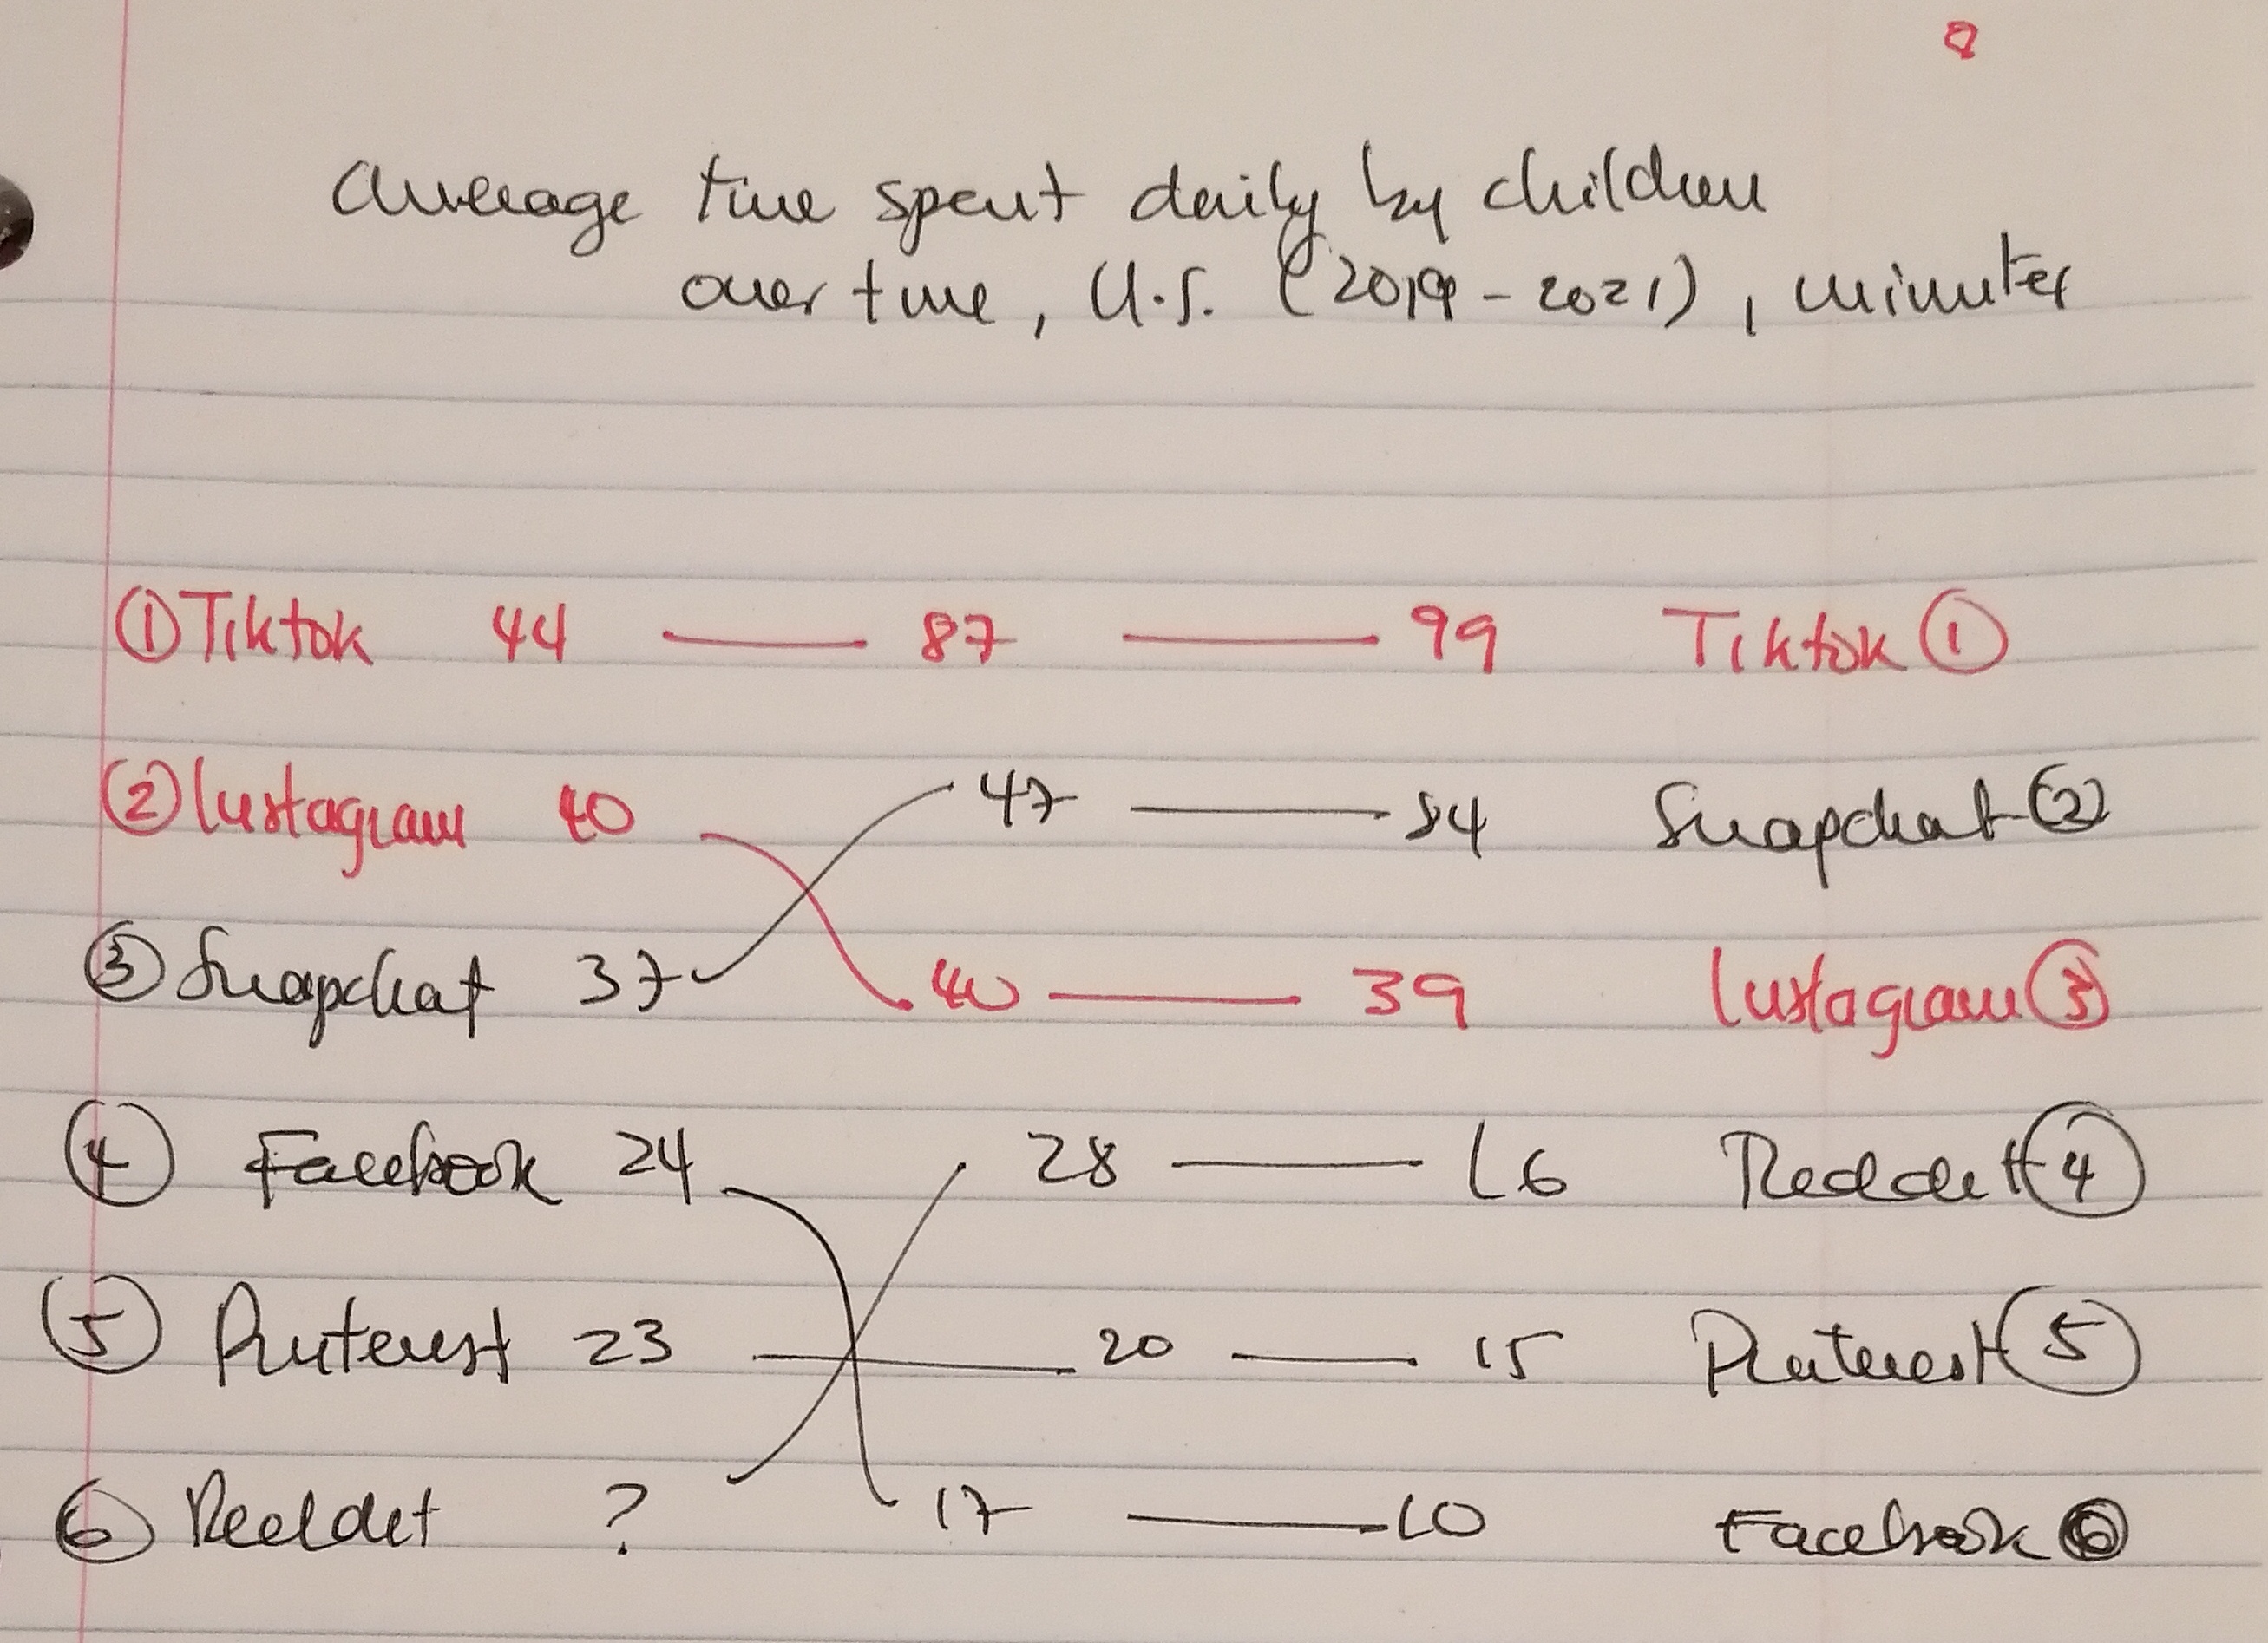 Average time spent daily by children
over time, U.S. (2019-2021), minutes
① Tiktok 44 — 87 — 99 Tiktok ①
② Instagram 40 47 — 54 Snapchat ②
③ Snapchat 37 40 — 39 Instagram ③
④ Facebook 24 28 — 16 Reddit ④
⑤ Pinterest 23 — 20 — 15 Pinterest ⑤
⑥ Reddit ? 17 — 10 Facebook ⑥